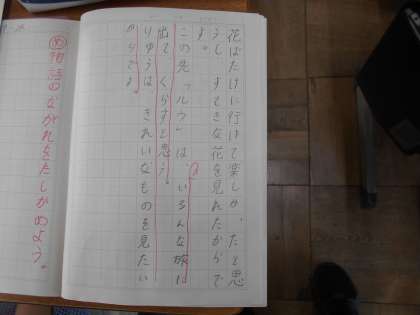 花ばたけに行けて楽しかったと思
うし、すてきな花を見れたからで
す。
この先「ルウ」は、いろんな旅に
出て、くらすと思う。
りゆうは、きれいなものを見たい
からです。
め 物語のながれをたしかめよう。